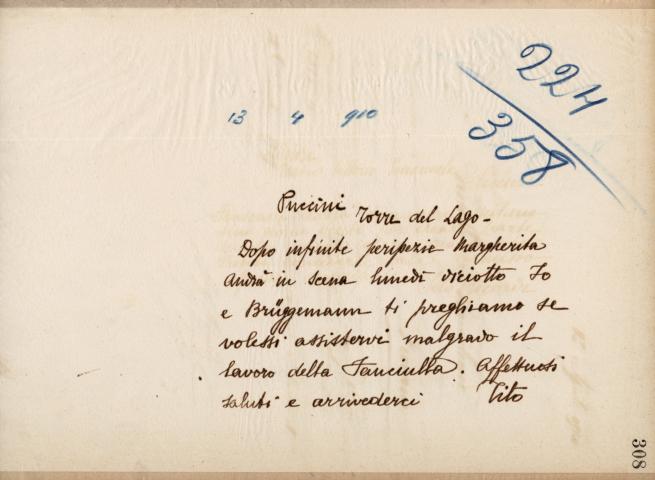 224
358
13 4 910
Puccini Torre del Lago -
Dopo infinite peripezie Margherita
andrà in scena lunedì diciotto Io
e Brüggemann ti preghiamo se
volessi assistervi malgrado il
lavoro della Fanciulla. Affettuosi
saluti e arrivederci Tito
308